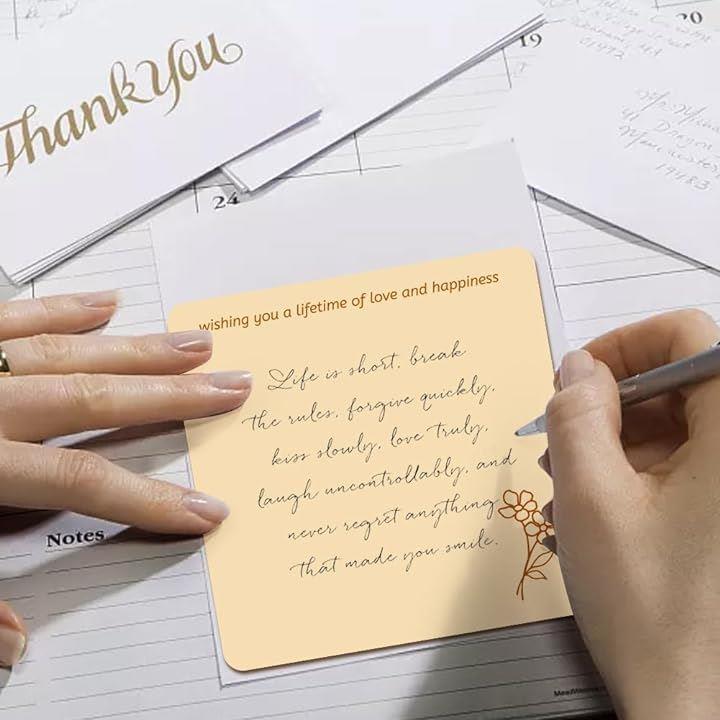 Thank You
19
20
24
wishing you a lifetime of love and happiness
Life is short, break
the rules, forgive quickly,
kiss slowly, love truly,
laugh uncontrollably, and
never regret anything
that made you smile.
Notes